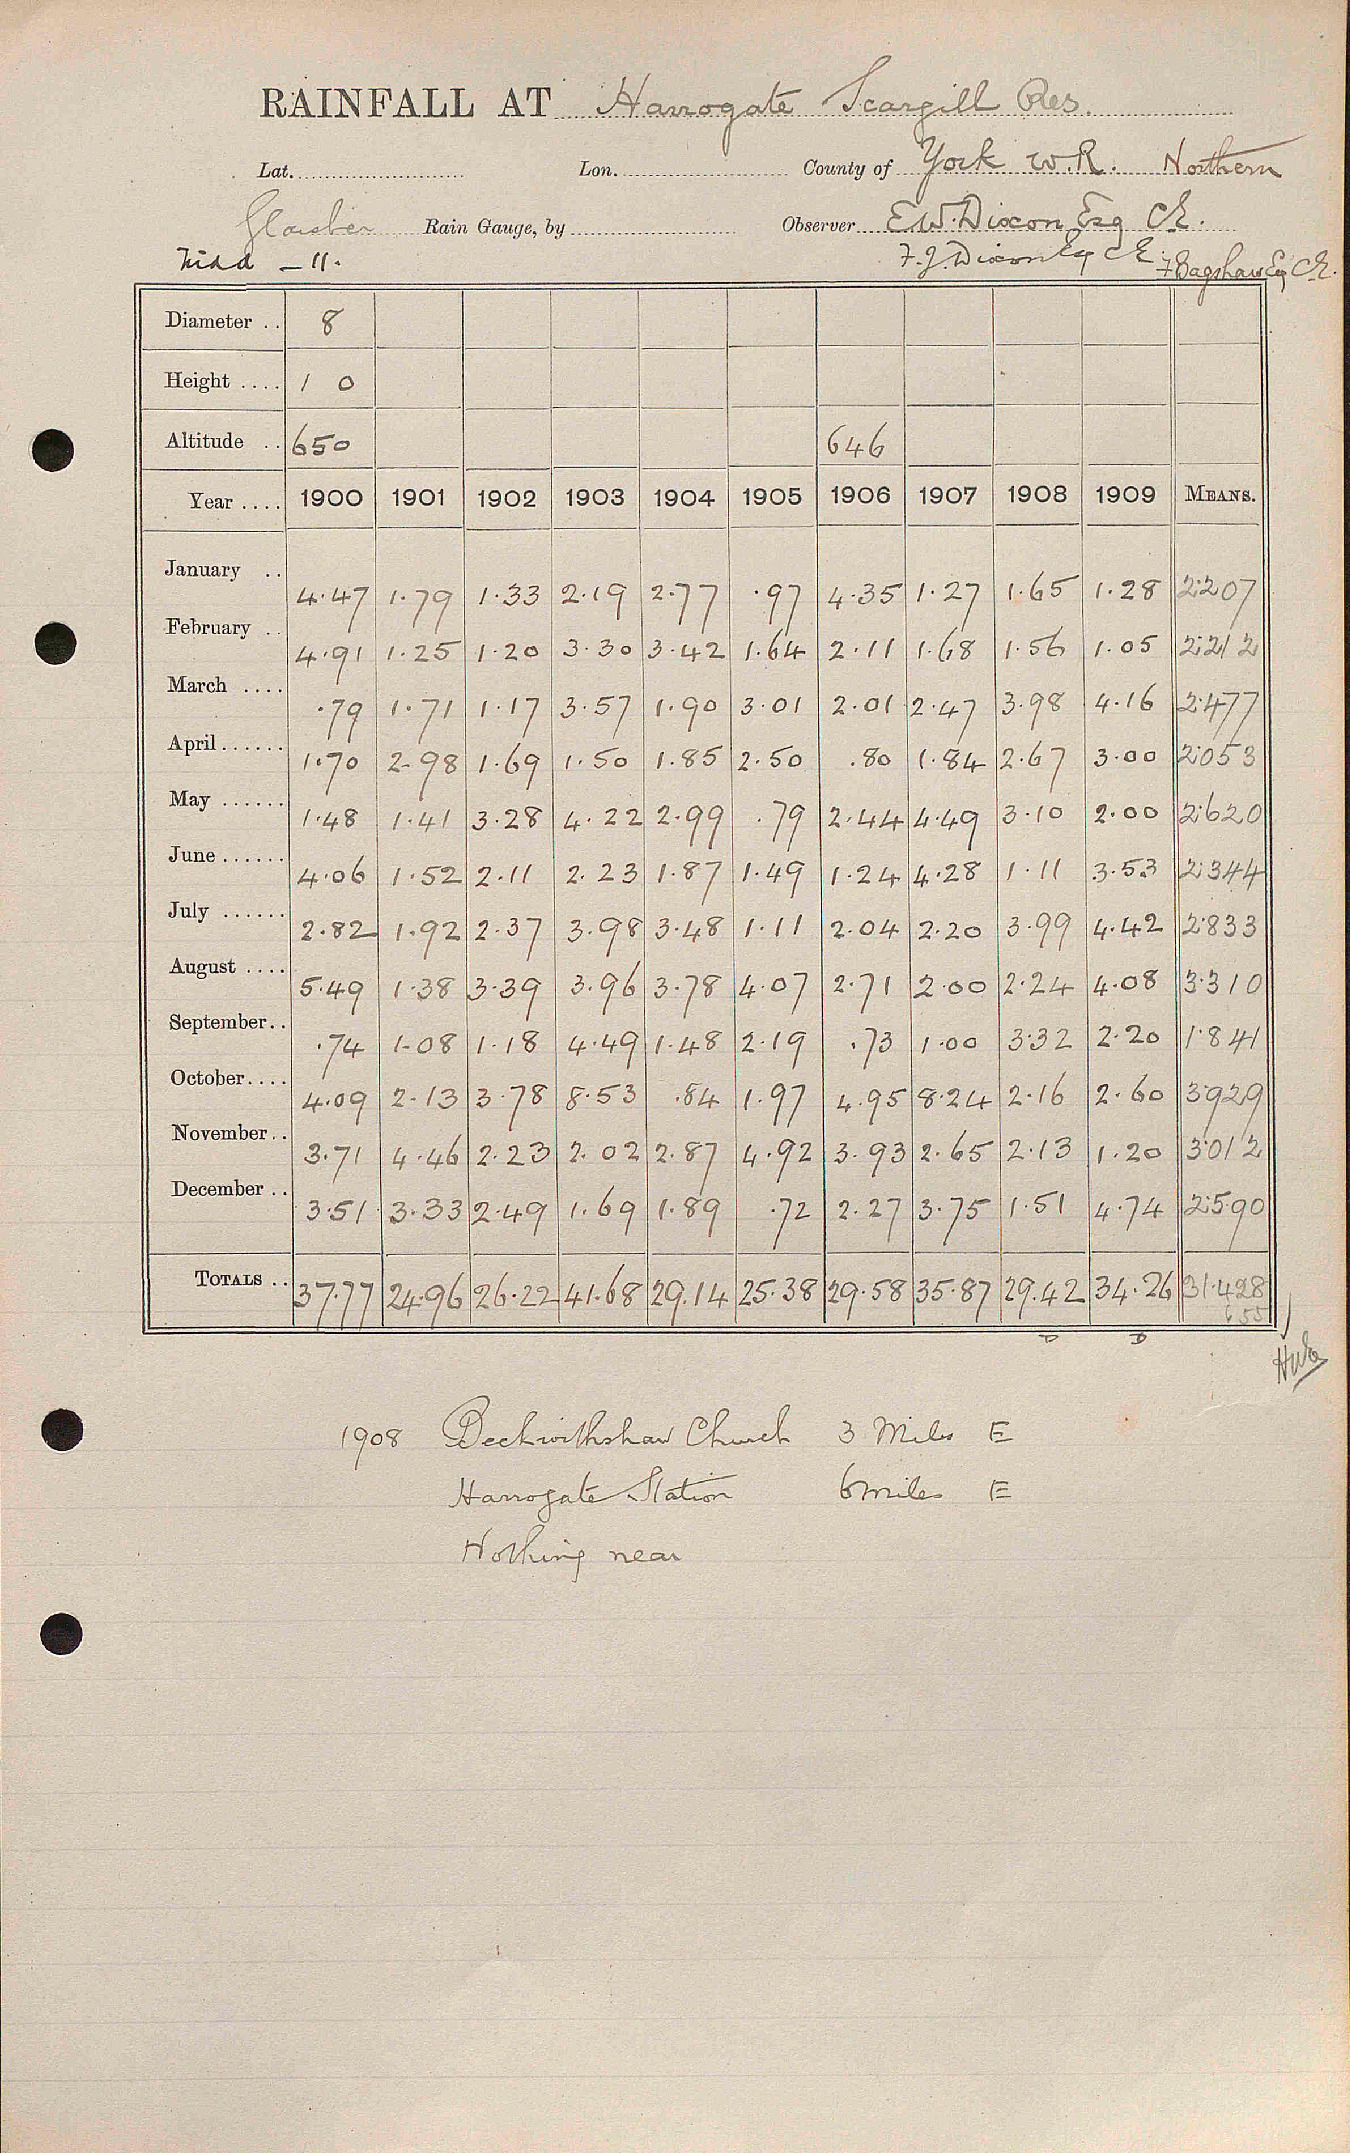 RAINFALL AT Harrogate Scargill Res.
Lat. Lon. County of York W.R. Northern
Glaisher Rain Gauge, by Observer E.W. Dixon Esq CE.
Nidd – 11. F.J. Dixon Esq CE. F Bagshaw Esq CE.
Diameter .. 8
Height .... 1 0
Altitude .. 650 646
Year .... 1900 1901 1902 1903 1904 1905 1906 1907 1908 1909 MEANS.
January .. 4.47 1.79 1.33 2.19 2.77 .97 4.35 1.27 1.65 1.28 2.207
February .. 4.91 1.25 1.20 3.30 3.42 1.64 2.11 1.68 1.56 1.05 2.212
March .... .79 1.71 1.17 3.57 1.90 3.01 2.01 2.47 3.98 4.16 2.477
April ...... 1.70 2.98 1.69 1.50 1.85 2.50 .80 1.84 2.67 3.00 2.053
May ...... 1.48 1.41 3.28 4.22 2.99 .79 2.44 4.49 3.10 2.00 2.620
June ...... 4.06 1.52 2.11 2.23 1.87 1.49 1.24 4.28 1.11 3.53 2.344
July ...... 2.82 1.92 2.37 3.98 3.48 1.11 2.04 2.20 3.99 4.42 2.833
August .... 5.49 1.38 3.39 3.96 3.78 4.07 2.71 2.00 2.24 4.08 3.310
September.. .74 1.08 1.18 4.49 1.48 2.19 .73 1.00 3.32 2.20 1.841
October.... 4.09 2.13 3.78 8.53 .84 1.97 4.95 8.24 2.16 2.60 3.929
November.. 3.71 4.46 2.23 2.02 2.87 4.92 3.93 2.65 2.13 1.20 3.012
December .. 3.51 3.33 2.49 1.69 1.89 .72 2.27 3.75 1.51 4.74 2.590
TOTALS .. 37.77 24.96 26.22 41.68 29.14 25.38 29.58 35.87 29.42 34.26 31.428
D D
1908 Beckwithshaw Church 3 Miles E
Harrogate Station 6 miles E
Nothing near